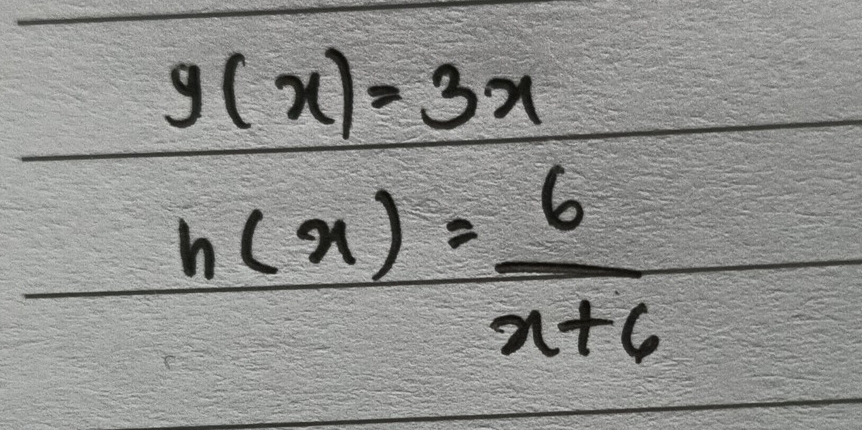 g(x) = 3x
h(x) = 6/(x+6)